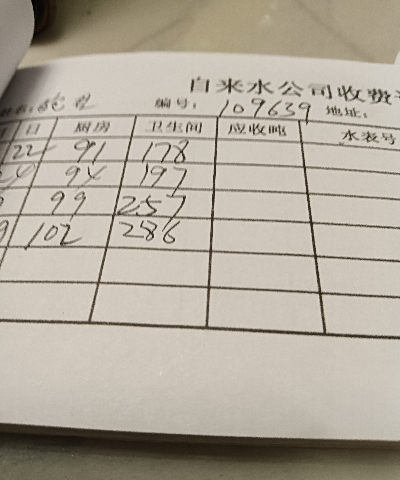 自来水公司收费
编号: 109639 地址:
日 厨房 卫生间 应收吨 水表号
22 91 178
94 197
99 257
102 286